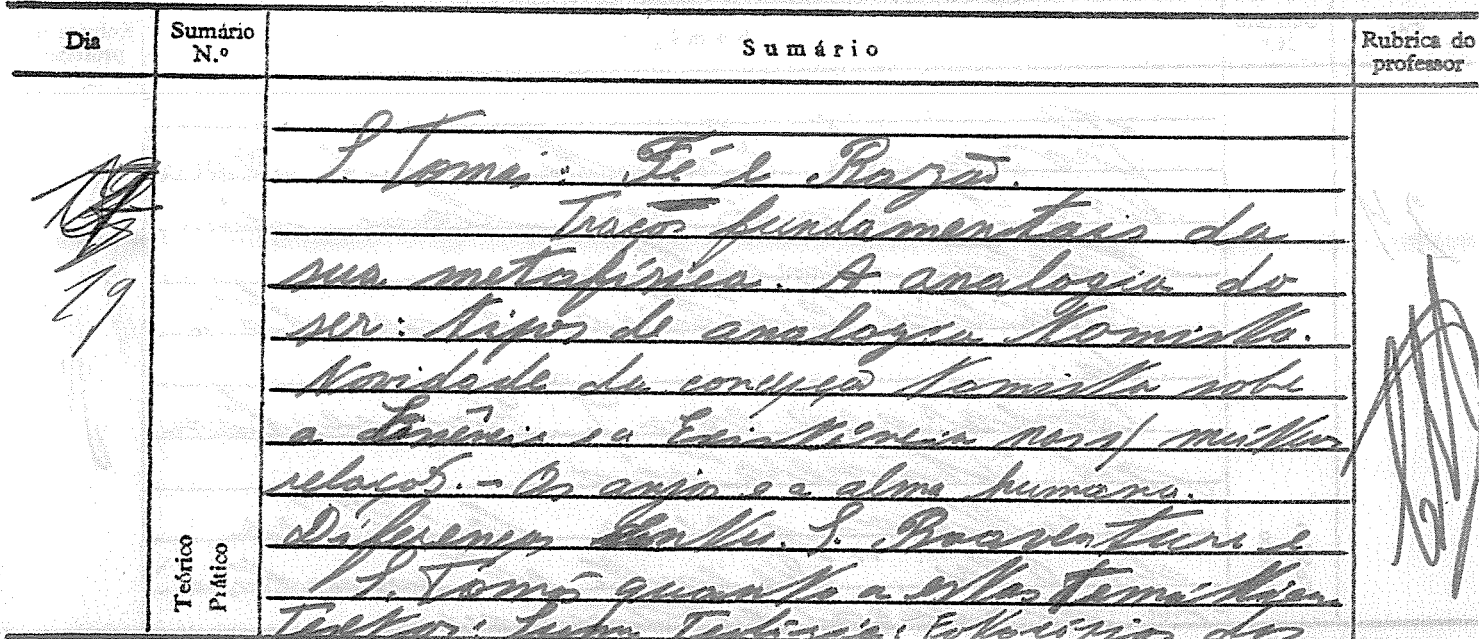 Dia
Sumário N.º
Sumário
Rubrica do professor
S. Tomás: Fé e Razão.
Traços fundamentais da
sua metafísica. A analogia do
ser: tipos de analogia tomista.
Novidade da concepção tomista sobre
a Essência e a Existência nas s/ mútuas
relações. - Os anjos e a alma humana.
Diferenças entre S. Boaventura e
S. Tomás quanto a estas temáticas
Textos: Suma
19
Teórico
Prático